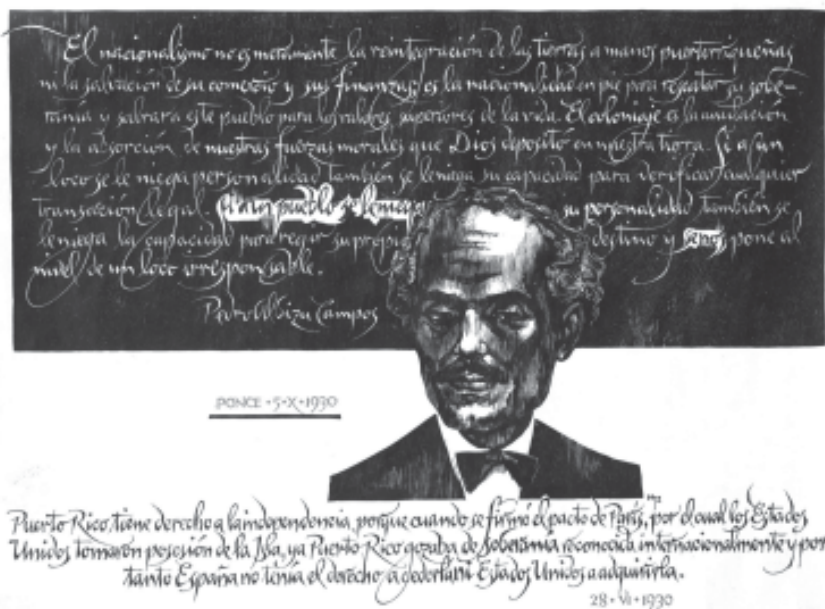 El nacionalismo no es meramente la reintegración de las tierras a manos puertorriqueñas
ni la salvación de su comercio y sus finanzas; es la nacionalidad en pie para rescatar su sobe-
ranía y salvar a este pueblo para los valores superiores de la vida. El coloniaje es la anulación
y la absorción de nuestras fuerzas morales que Dios depositó en nuestra tierra. Si a un
loco se le niega personalidad también se le niega su capacidad para verificar cualquier
transacción legal. Si a un pueblo se le niega su personalidad también se
le niega la capacidad para regir su propio destino y se nos pone al
nivel de un loco irresponsable.
Pedro Albizu Campos
PONCE • 5 • X • 1930
Puerto Rico tiene derecho a la independencia, porque cuando se firmó el pacto de París, por el cual los Estados
Unidos tomaron posesión de la Isla, ya Puerto Rico gozaba de soberanía reconocida internacionalmente y por
tanto España no tenía el derecho a cederla ni Estados Unidos a adquirirla.
28 • VI • 1930